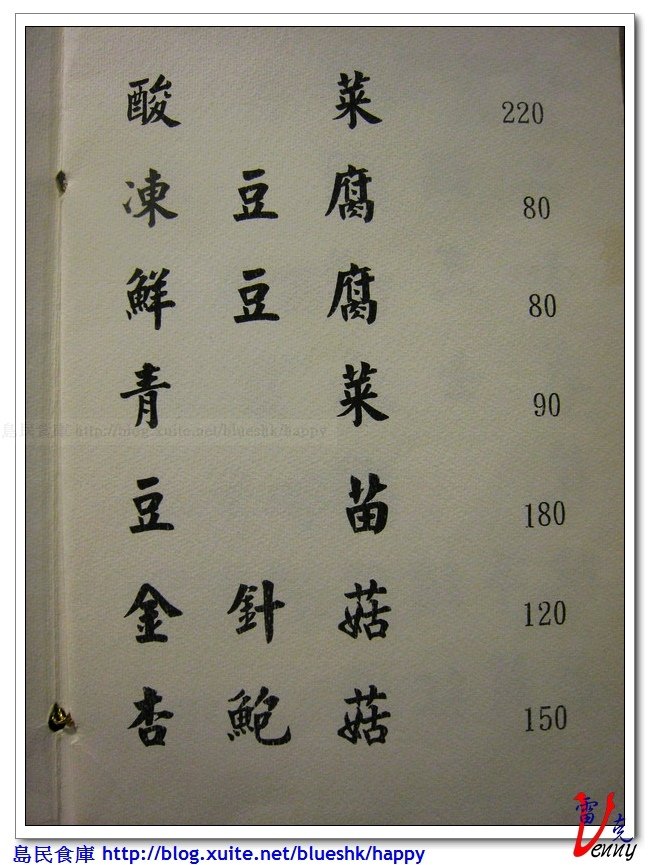 酸菜 220
凍豆腐 80
鮮豆腐 80
青菜 90
島民食庫 http://blog.xuite.net/blueshk/happy
豆苗 180
金針菇 120
杏鮑菇 150
雷克
Venny
島民食庫 http://blog.xuite.net/blueshk/happy